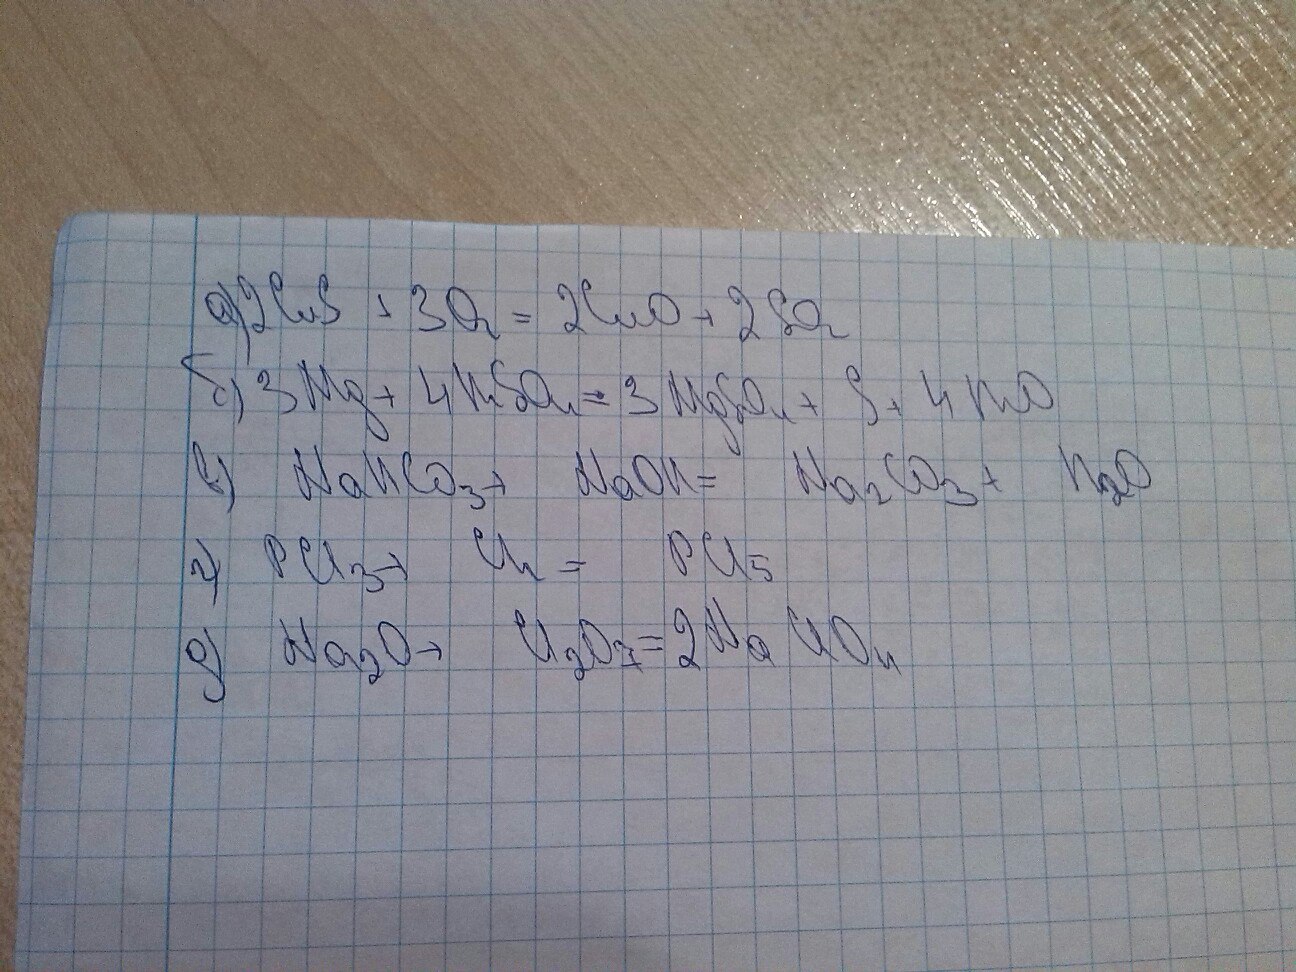 а) 2CuS + 3O2 = 2CuO + 2SO2
б) 3Mg + 4H2SO4 = 3MgSO4 + S + 4H2O
в) NaHCO3 + NaOH = Na2CO3 + H2O
г) PCl3 + Cl2 = PCl5
д) Na2O + Cl2O7 = 2NaClO4